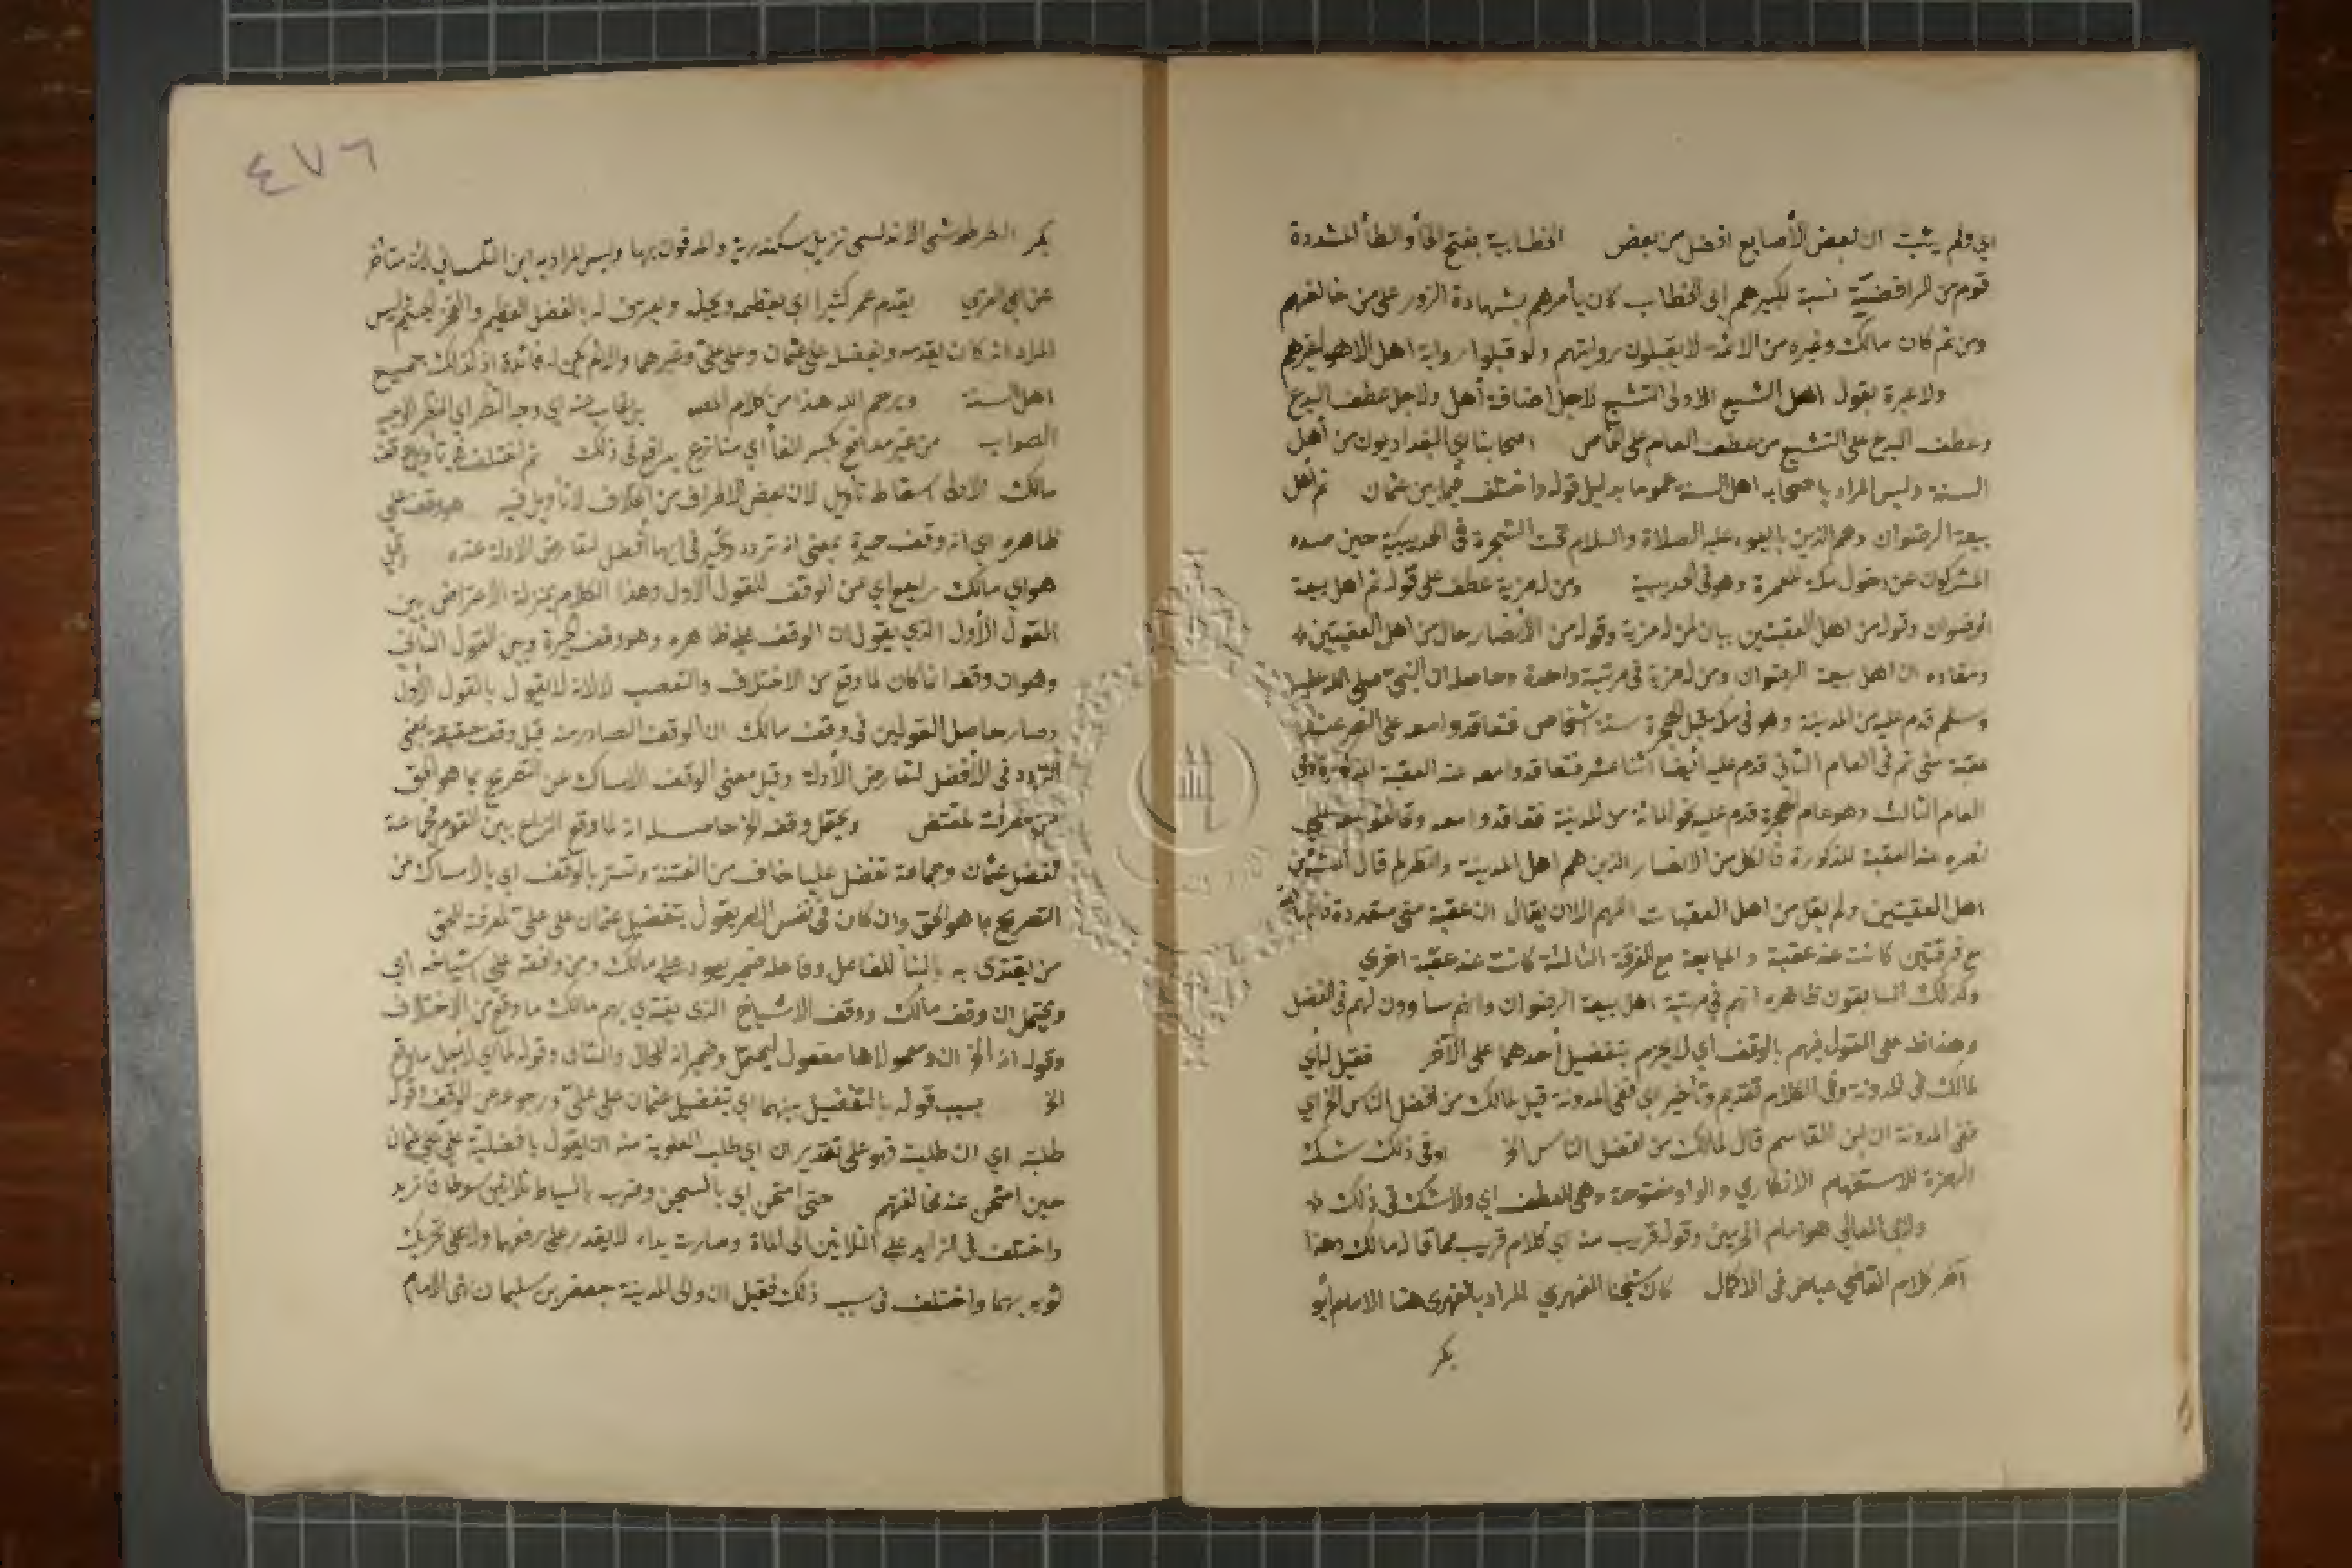 اي ولم يثبت ان لبعض الأصابع افضل من بعض الخطابية بفتح الخأ والطأ المشددة
قوم من الرافضية نسبة لكبيرهم ابى الخطاب كان يأمرهم بشهادة الزور على من خالفهم
ومن ثم كان مالك وغيره من الائمة لا يقبلون روايتهم ولو قبلوا رواية اهل الاهوا غيرهم
ولا عبرة بقول اهل الشيع الاولى التشيع لاجل اضافة أهل ولاجل عطف البدع
وعطف البدع على التشيع من عطف العام على الخاص اصحابنا اي البغداديون من أهل
السنة وليس المراد باصحابه اهل السنة عموما بدليل قوله واختلف فيما بين عثمان ثم اهل
بيعة الرضوان وهم الذين بايعوه عليه الصلاة والسلام تحت الشجرة في الحديبية حين صده
المشركون عن دخول مكة للعمرة وهو في الحديبية ومن له مزية عطف على قوله ثم اهل بيعة
الرضوان وقوله من اهل العقبتين بيان لمن له مزية وقوله من الأنصار حال من اهل العقبتين
ومفاده ان اهل بيعة الرضوان ومن له مزية في مرتبة واحدة وحاصله ان النبي صلى الله عليه
وسلم قدم عليه من المدينة وهو في مكة قبل الهجرة ستة اشخاص فتعاقدوا معه على النصر عند
عقبة منى ثم في العام الثاني قدم عليه أيضا اثنا عشر فتعاقدوا معه عند العقبة المذكورة وفي
العام الثالث وهو عام الهجرة قدم عليه نحو المائة من المدينة فتعاقدوا معه على
نصره عند العقبة المذكورة فالكل من الانصار الذين هم اهل المدينة وانظر لم قال المتن
اهل العقبتين ولم يقل من اهل العقبات اللهم الا ان يقال ان عقبة منى متعددة
مع فرقتين كانت عند عقبة والمبايعة مع الفرقة الثالثة كانت عند عقبة اخرى
وكذلك السابقون ظاهره انهم في مرتبة اهل بيعة الرضوان وانهم مساوون لهم في الفضل
وحفاظ على القول فيهم بالوقف أي لا يجزم بتفضيل أحدهما على الآخر فقيل له أي
لمالك في المدونة وفي الكلام تقديم وتأخير اي ففي المدونة قيل لمالك من افضل الناس الخ اي
ففي المدونة ان ابن القاسم قال لمالك من افضل الناس الخ اوفي ذلك شك
الهمزة للاستفهام الانكاري والواو مفتوحة وهي للعطف اي ولا شك في ذلك
ولابي المعالي هو امام الحرمين وقوله قريب منه اي كلام قريب مما قاله مالك وهذا
آخر كلام القاضي عياض في الاكمال كان شيخنا الفهري المراد بالفهري هنا الامام أبو
بكر
٤٧٦
بكر الطرطوشى الاندلسى نزيل سكندرية والمدفون بها وليس المراد به ابن التلمساني لانه متأخر
عن ابن العربي يقدم عمر كثيرا اي يعظمه ويجله ويعترف له بالفضل العظيم وليس
المراد انه كان يقدمه ويفضله على عثمان وعلى علي وغيرهما والا لم يكن له فائدة اذ كذلك جميع
اهل السنة ويرحم الله هذا من كلام المص وجه النظر اي النظر
الصواب من غير مدافع بكسر الفأ أي منازع يدافع في ذلك ثم اختلف في تأويل وقف
مالك الاولى اسقاط تأويل لان بعض الاطراف من الخلاف لا تأويل فيه هو وقف على
ظاهره اي انه وقف حيرة بمعنى انه تردد وتحير في ايهما أفضل لتعارض الادلة عنده وقيل
هو اي مالك راجع اي عن الوقف للقول الأول وهذا الكلام بمنزلة الاعتراض بين
القول الأول الذي يقول ان الوقف على ظاهره وهو وقف الحيرة وبين القول الثاني
وهو ان وقفه انما كان لما وقع من الاختلاف والتعصب لا لانه لا يقول بالقول الأول
وصار حاصل القولين في وقف مالك ان الوقف الصادر منه قيل وقف حقيقة بمعنى
التردد في الأفضل لتعارض الأدلة وقيل معنى الوقف الامساك عن التصريح بما هو الحق
لمقتض ويحتمل وقفه الخ حاصله انه لما وقع النزاع بين القوم فجماعة
تفضل عثمان وجماعة تفضل عليا خاف من الفتنة وتستر بالوقف اي بالامساك عن
التصريح بما هو الحق وان كان في نفس الامر يقول بتفضيل عثمان على علي لمعرفة الحق
من يقتدى به بالبنأ للفاعل وفاعله ضمير يعود على مالك ومن واقعة على اشياخه اي
ويحتمل ان وقف مالك ووقف الاشياخ الذى يقتدي بهم مالك ما وقع من الاختلاف
وقوله انه الخ ان ومعمولاها مفعول ليحتمل وضمير انه للحال والشأن وقوله لما اي لاجل ما وقع
الخ بسبب قوله بالتفضيل بينهما اي بتفضيل عثمان على علي ورجوعه عن الوقف قوله
طلبته اي ان طلبت فهو على تقدير ان اي طلب العلوية منه ان يقول بافضلية علي على عثمان
حين امتحن عند مخالفتهم حتى امتحن اي بالسجن وضرب بالسياط ثلاثين سوطا فأزيد
واختلف في الزايد على الثلاثين الى المائة وصارت يداه لا يقدر على رفعهما ولا على تحريك
ثوبه بهما واختلف في سبب ذلك فقيل ان والى المدينة جعفر بن سليمان نهى الامام